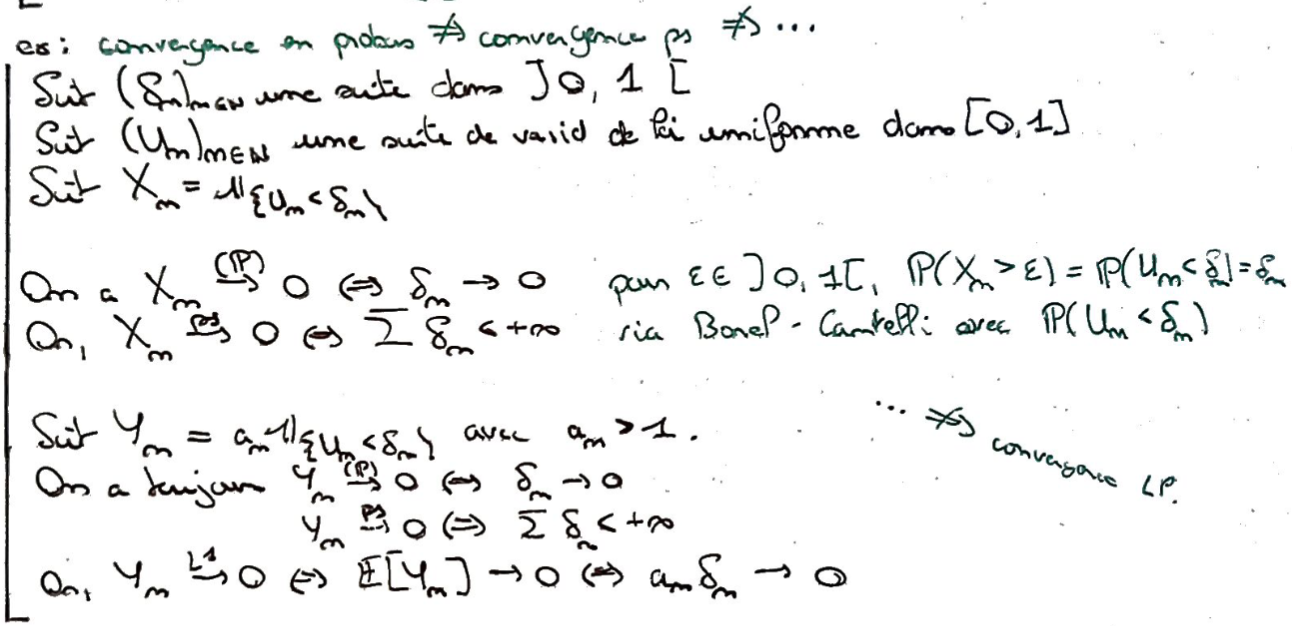 ex : convergence en probas ⇏ convergence ps ⇏ ...
Soit (δₙ)ₙ∈ℕ une suite dans ]0, 1[
Soit (Uₙ)ₙ∈ℕ une suite de vaiid de loi uniforme dans [0,1]
Soit Xₙ = 𝟙{Uₙ < δₙ}
On a Xₙ —(ℙ)→ 0 ⇔ δₙ → 0 pour ε ∈ ]0, 1[, ℙ(Xₙ > ε) = ℙ(Uₙ < δₙ) = δₙ
Or, Xₙ —ps→ 0 ⇔ Σ δₙ < +∞ via Borel-Cantelli avec ℙ(Uₙ < δₙ)
Soit Yₙ = aₙ 𝟙{Uₙ < δₙ} avec aₙ > 1.
... ⇏ convergence Lᵖ.
On a toujours Yₙ —(ℙ)→ 0 ⇔ δₙ → 0
Yₙ —ps→ 0 ⇔ Σ δₙ < +∞
Or, Yₙ —L¹→ 0 ⇔ 𝔼[Yₙ] → 0 ⇔ aₙ δₙ → 0